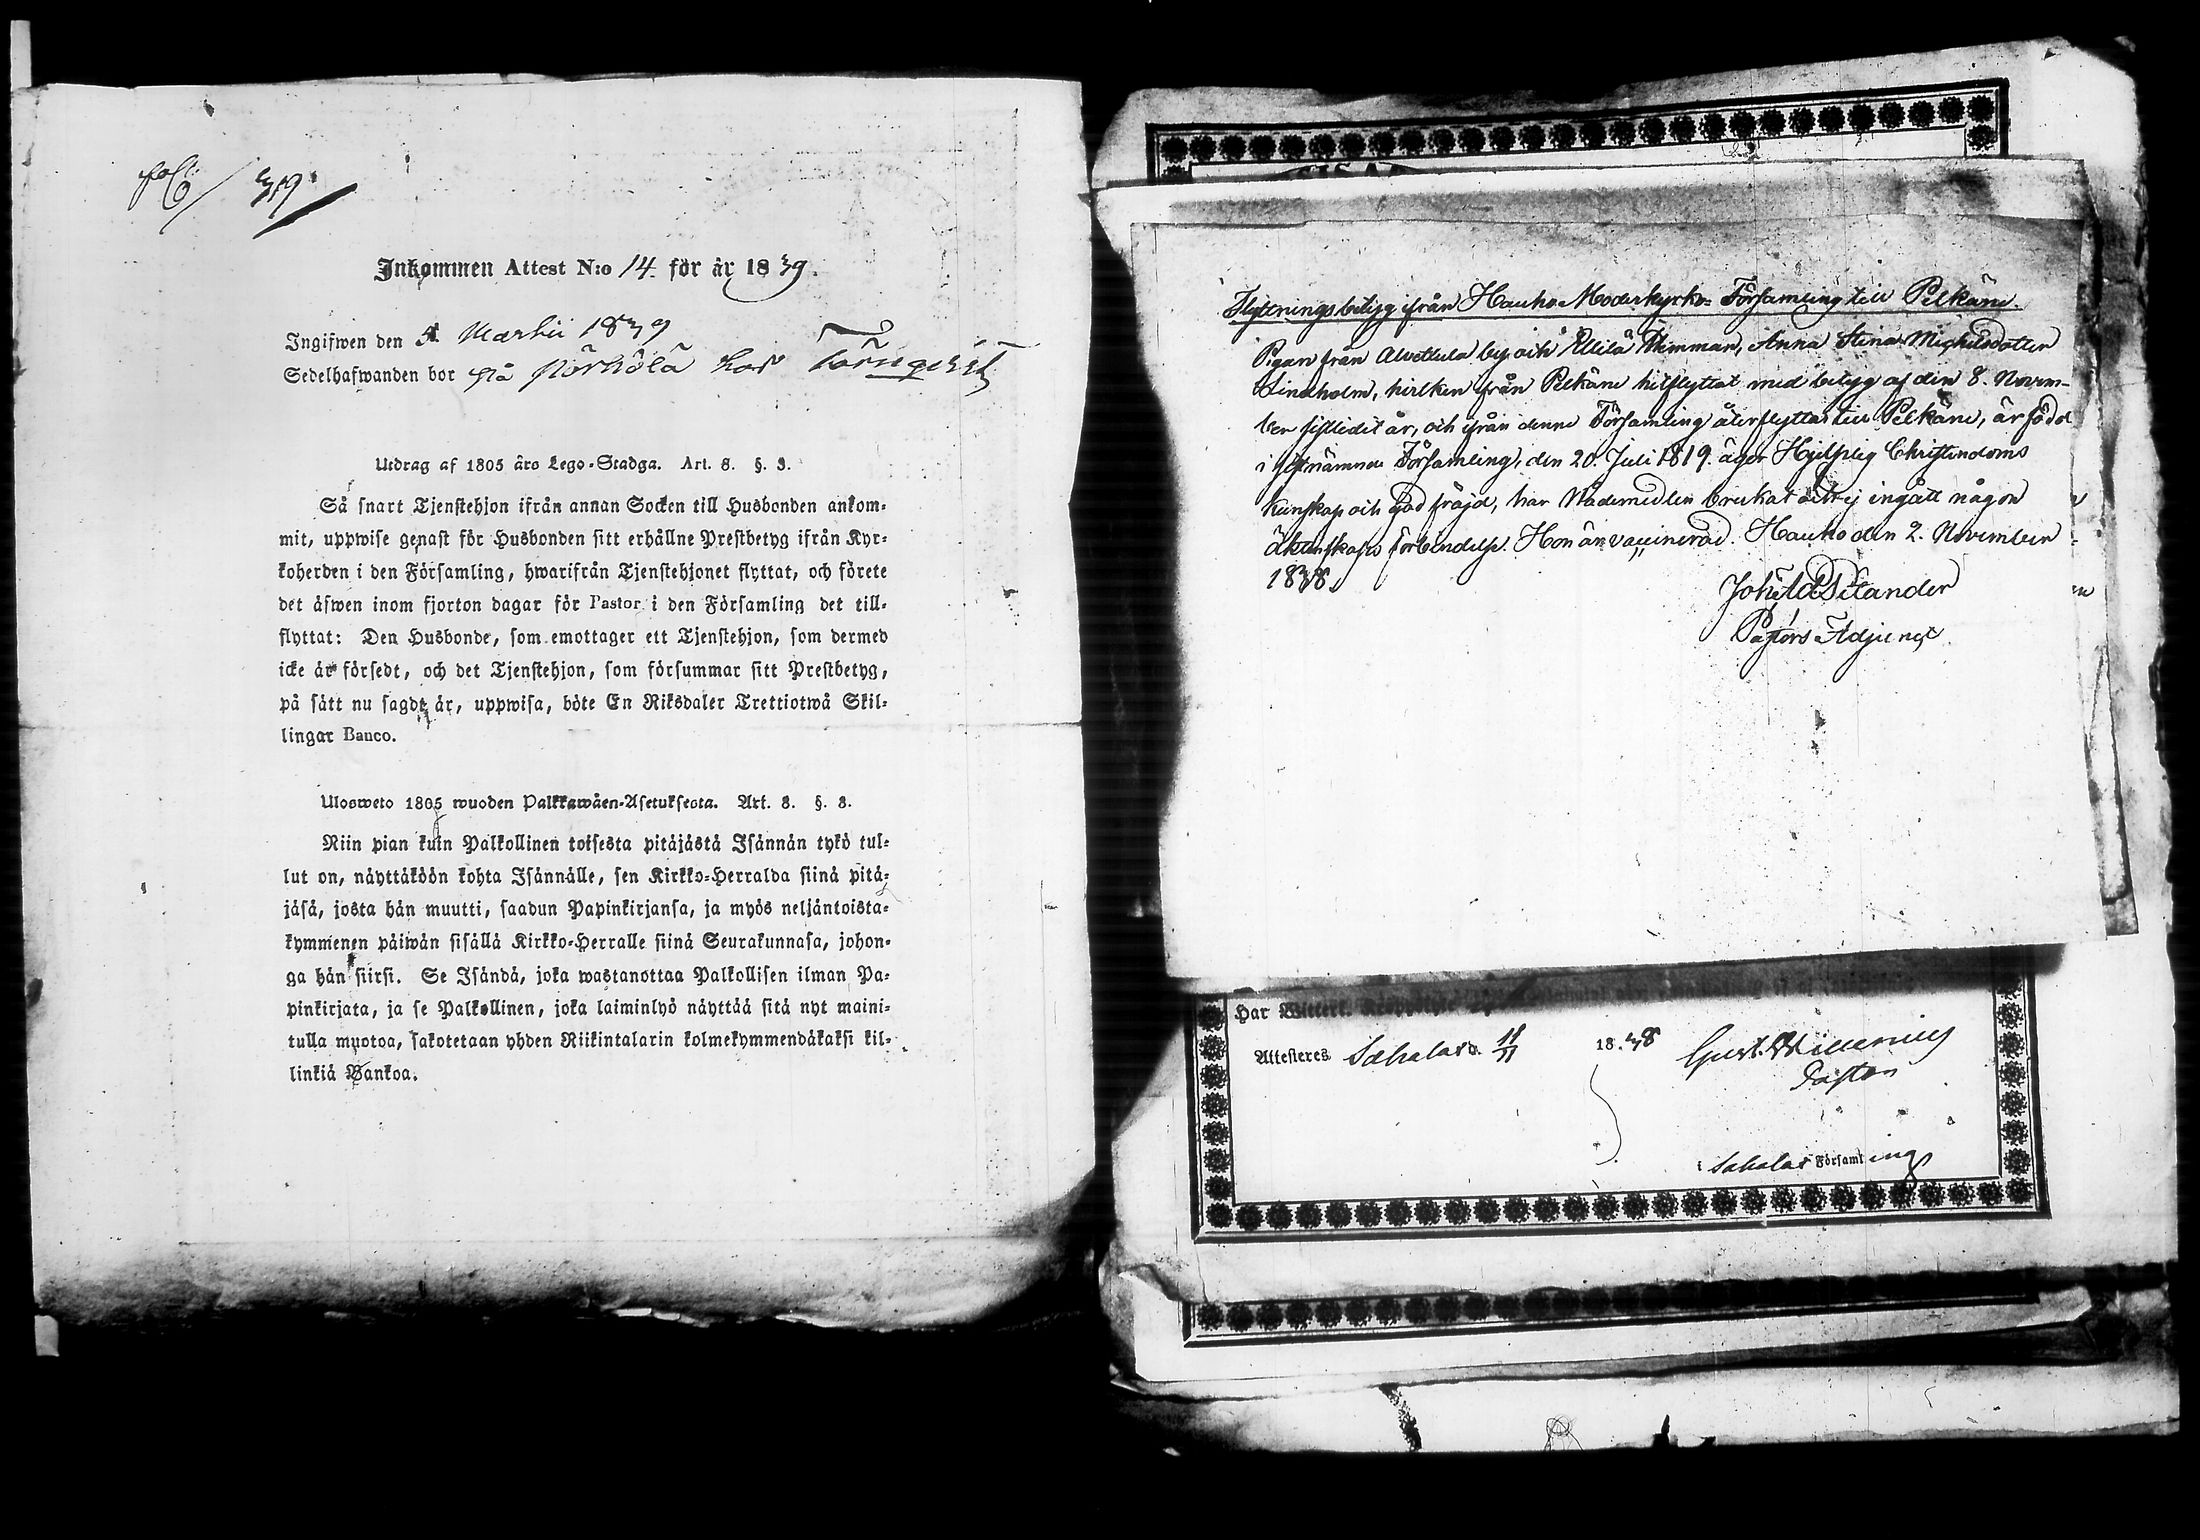 fol. 319.
Inkommen Attest N:o 14. för år 1839.
Ingifwen den 31 Martii 1839
Sedelhafwanden bor på Pörhölä hos Törnqvist
Utdrag af 1805 års Lego-Stadga. Art. 8. §. 3.
Så snart Tjenstehjon ifrån annan Socken till Husbonden ankom-
mit, uppwise genast för Husbonden sitt erhållne Prestbetyg ifrån Kyr-
koherden i den Församling, hwarifrån Tjenstehjonet flyttat, och förete
det äfwen inom fjorton dagar för Pastor i den Församling det till-
flyttat: Den Husbonde, som emottager ett Tjenstehjon, som dermed
icke är försedt, och det Tjenstehjon, som försummar sitt Prestbetyg,
på sätt nu sagdt är, uppwisa, böte En Riksdaler Trettiotwå Skil-
lingar Banco.
Ulosweto 1805 wuoden Palkkawäen-Asetuksesta. Art. 8. §. 3.
Niin pian kuin Palkollinen toisesta pitäjästä Isännän tykö tul-
lut on, näyttäköön kohta Isännälle, sen Kirkko-Herralda siinä pitä-
jäsä, josta hän muutti, saadun Papinkirjansa, ja myös neljäntoista-
kymmenen päiwän sisällä Kirkko-Herralle siinä Seurakunnasa, johon-
ga hän siirsi. Se Isändä, joka wastanottaa Palkollisen ilman Pa-
pinkirjata, ja se Palkollinen, joka laiminlyö näyttää sitä nyt maini-
tulla muotoa, sakotetaan yhden Riikintalarin kolmekymmendäkaksi kil-
linkiä Bankoa.
Flyttningsbetyg ifrån Hauho Moderkyrko-Församling till Pelkäne.
Pigan från Alvettula by och Ellilä Hemman, Anna Stina Michelsdotter
Lindholm, hvilken från Pelkäne hitflyttat med betyg af den 8. Novem-
ber sistledit år, och ifrån denne Församling återflyttar till Pelkäne, är född
i sistnämnde Församling, den 20. Juli 1819. äger Hjelplig Christendoms
kunskap och god fräjd, har Nådemedlen brukat och ej ingått någon
Äktenskaps förbindelse. Hon är vaccinerad. Hauho den 2. November
1838.
Joh: Ad: Silander
Pastors Adjunct.
Har
Attesteres Sahalax d. 11/11 1838 Gust.
Pastor
i Sahalax Församling